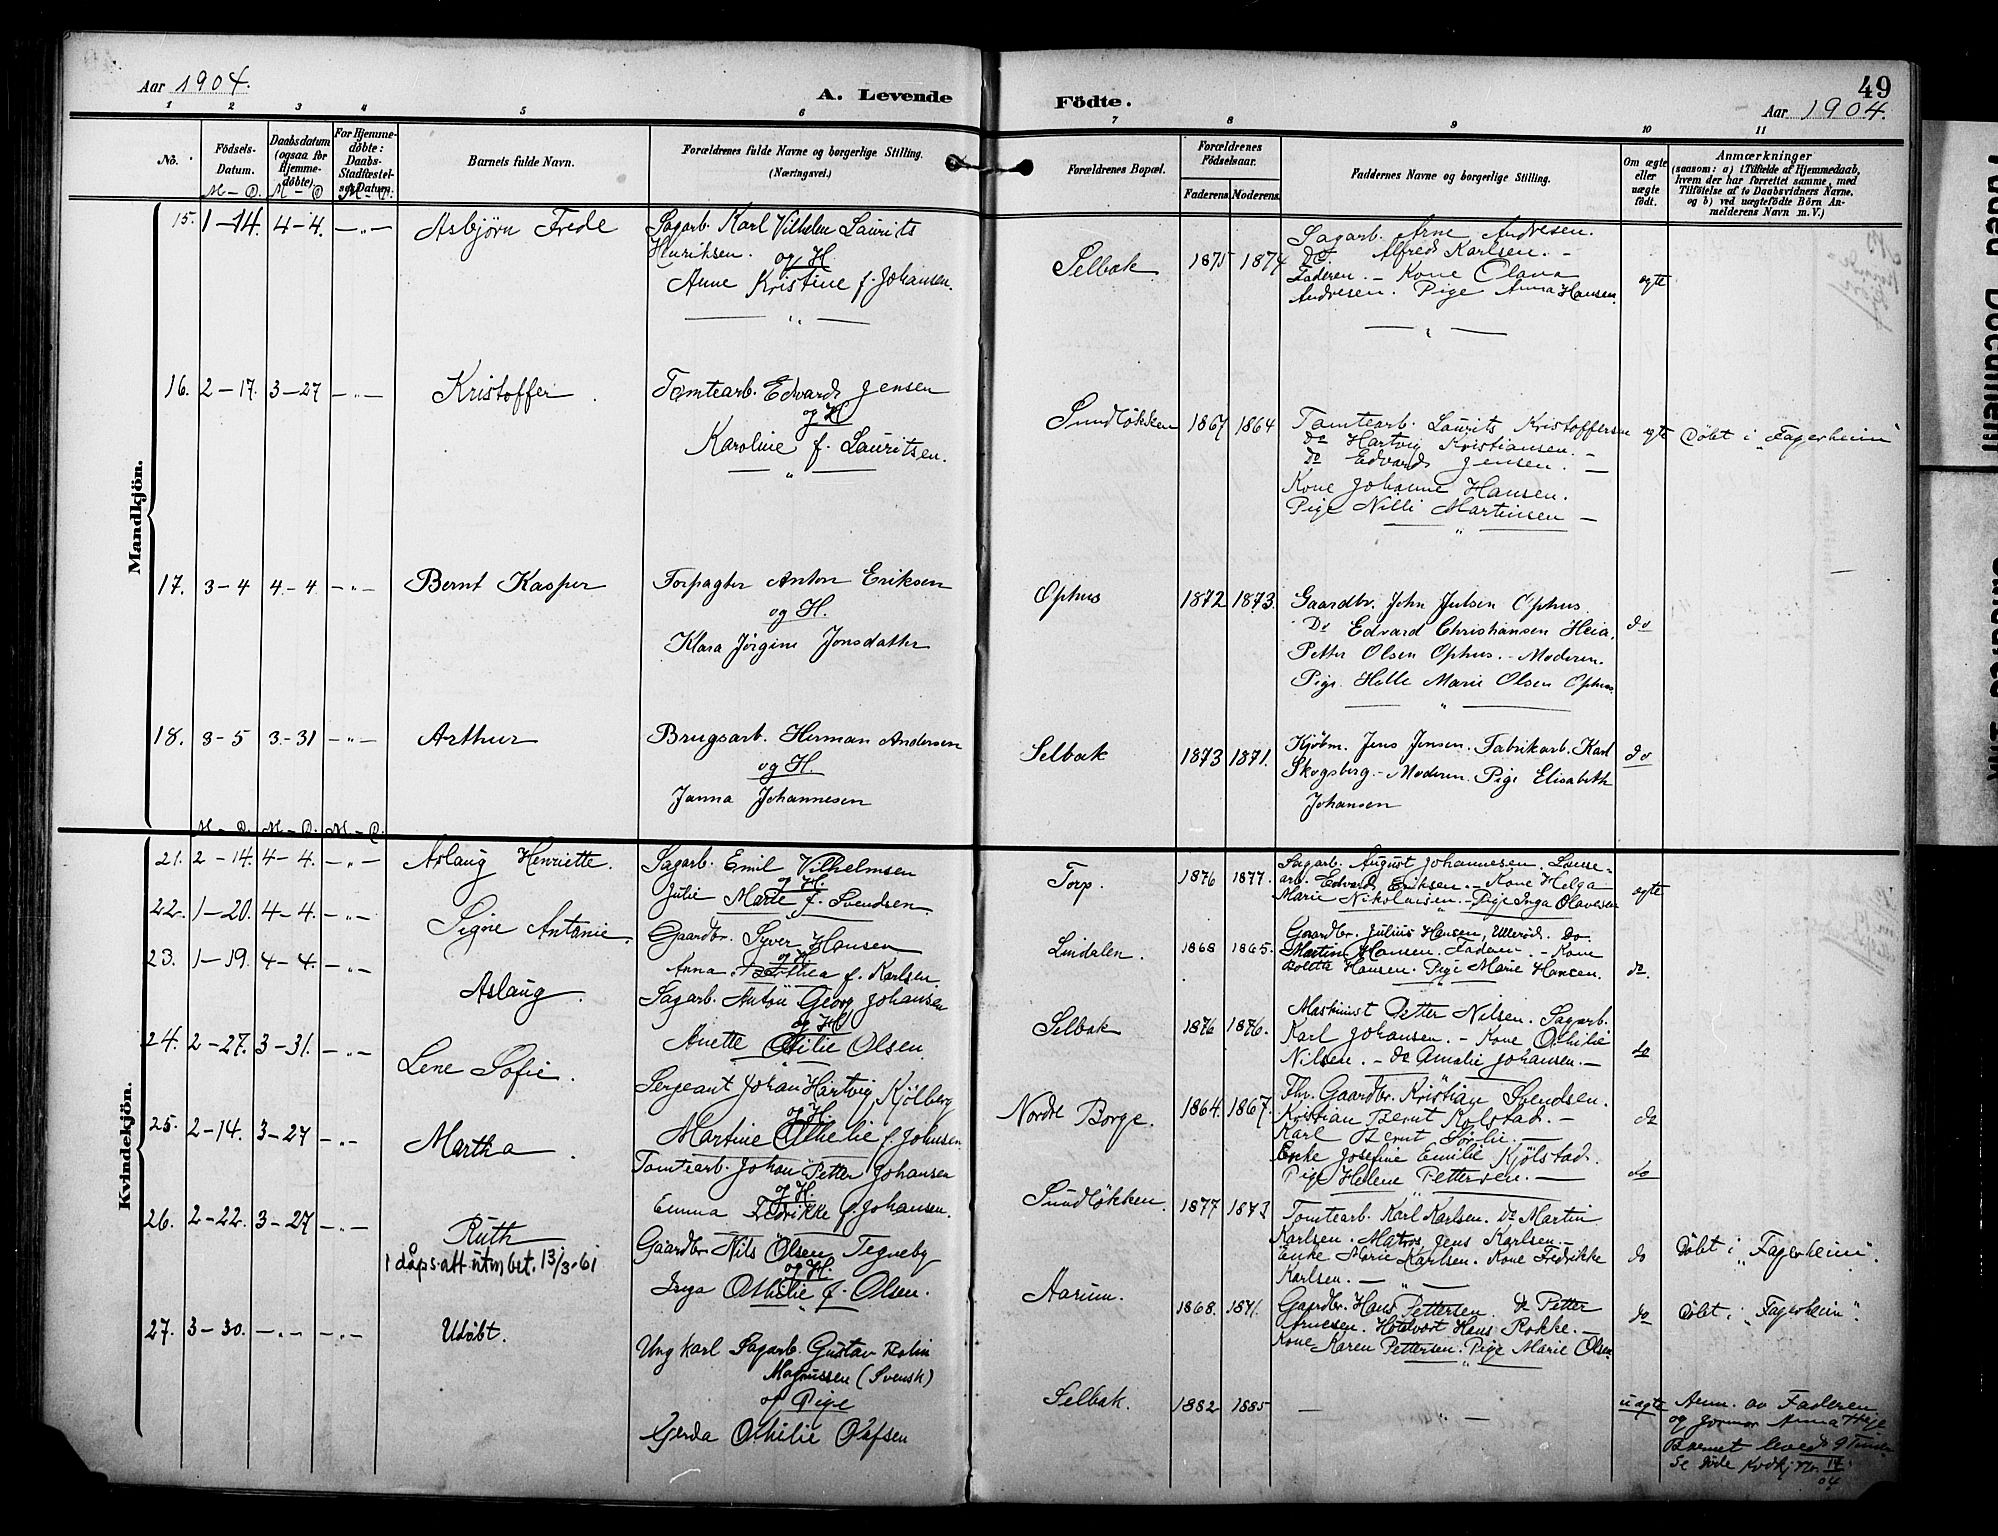 Aar 1904.
A. Levende
Födte.
49
Aar 1904.
1 2 3 4 5 6 7 8 9 10 11
No.
Födsels-Datum.
M – D.
Daabsdatum (ogsaa for Hjemme-døbte)
M – D
For Hjemme-døbte: Daabs-Stadfæstel-ses-Datum.
M – D.
Barnets fulde Navn.
Forældrenes fulde Navne og borgerlige Stilling. (Næringsvei.)
Forældrenes Bopæl.
Forældrenes Födselsaar.
Faderens. Moderens.
Faddernes Navne og borgerlige Stilling.
Om ægte eller uægte født.
Anmærkninger
(saasom: a) i Tilfælde af Hjemmedaab, hvem der har forrettet samme, med Tilföielse af to Daabsvidners Navne, og b) ved uægtefödte Börn An-melderens Navn m. V.)
Mandkjön.
15. 1–14. 4–4. –„– Asbjørn Frede
Sagarb. Karl Vilhelm Laurits
Henriksen. og H.
Anne Kristine f. Johansen.
Selbak 1875 1874
Sagarb. Arne Andresen.
Do. Alfred Karlsen. –
Faderen. – Kone Olava
Andresen. Pige Anna Hansen.
egte
16. 2–17. 3–27 –„– Kristoffer.
Tomtearb. Edvard Jensen
og H
Karoline f. Lauritsen.
Sundløkken 1867 1864
Tomtearb. Laurits Kristoffersen
do Hartvig Kristiansen. –
do Edvard Jensen. –
Kone Johanne Hansen.
Pige Nilli Martinsen –
egte
Døbt i „Fagerheim"
17. 3–4 4–4 –„– Bernt Kasper
Forpagter Anton Eriksen
og H.
Klara Jørgine Jonsdatter
Ophus 1872 1873.
Gaardbr. John Julsen Ophus.
Do Edvard Christiansen Heia.
Petter Olsen Ophus. – Moderen.
Pige Helle Marie Olsen Ophus
do
18. 3–5 3–31 –„– Arthur
Brugsarb. Herman Andersen
og H.
Janna Johannesen
Selbak 1873 1871.
Kjøbm. Jens Jensen. Fabrikarb. Karl
Skogsberg. – Moderen. Pige Elisabeth
Johansen
do
M – D. M – D. M – D.
Kvindekjön.
21. 2–14. 4–4. –„– Aslaug Henriette.
Sagarb. Emil Vilhelmsen
og H.
Julie Marie f. Svendsen.
Torp. 1876 1877.
Sagarb. August Johannesen. Lense-
arb. Edvard Eriksen. – Kone Helga
Marie Nikolaisen. – Pige Inga Olavesen
egte
22. 1–20. 4–4. –„– Signe Antonie.
Gaardbr. Syver Hansen
og H.
Anna f. Karlsen.
Lindalen. 1868 1865.
Gaardbr. Julius Hansen, Ullerød. Do.
Martin Hansen. Faderen. – Kone
Bolette Hansen. Pige Marie Hansen.
do.
23. 1–19. 4–4. –„– Aslaug.
Sagarb. Anton Georg Johansen
og H
Anette Othilie Olsen.
Selbak 1876 1876.
Maskinist Petter Nilsen. Sagarb.
Karl Johansen. – Kone Othilie
Nilsen. – do Amalie Johansen. –
do
24. 2–27. 3–31. –„– Lene Sofie.
Sergeant Johan Hartvig Kjølberg
og H.
Martine Othilie f. Johnsen
Nordre Borge. 1864. 1867.
Fhv. Gaardbr. Kristian Svendsen.
Kristian Bernt Kolstad. –
Karl Bernt Sørlie. –
Enke Josefine Emilie Kjølstad.
Pige Helene Pettersen. –
do
25. 2–14. 3–27 –„– Martha.
Tomtearb. Johan Petter Johansen
og H.
Emma Fredrikke f. Johansen.
Sundløkken. 1877 1873
Tomtearb. Karl Karlsen. Do Martin
Karlsen. Matros Jens Karlsen. –
Enke Marie Karlsen. Kone Fredrikke
Karlsen. –
do
do
Døbt i „Fagerheim".
26. 2–22. 3–27 –„– Ruth
1 dåpsatt utm bet. 13/3-61
Gaardbr Nils Olsen Tegneby
og H.
Inga Othilie f. Olsen.
Aarum. 1868. 1871.
Gaardbr. Hans Pettersen. Do Petter
Arnesen. Hans Rokke. –
Kone Karen Pettersen. Pige Marie Olsen.
do
Døbt i „Fagerheim".
27. 3–30. –„– –„– Udøbt.
Ungkarl Sagarb. Gustav
Magnussen (Svensk)
og Pige
Gerda Othilie Olafsen
Selbak. 1882 1885
– „ –
uægte
Anm. av Faderen
og Jormor Anna
Barnet levede 9 Timer
Se døde Kvdkj No. 17/04